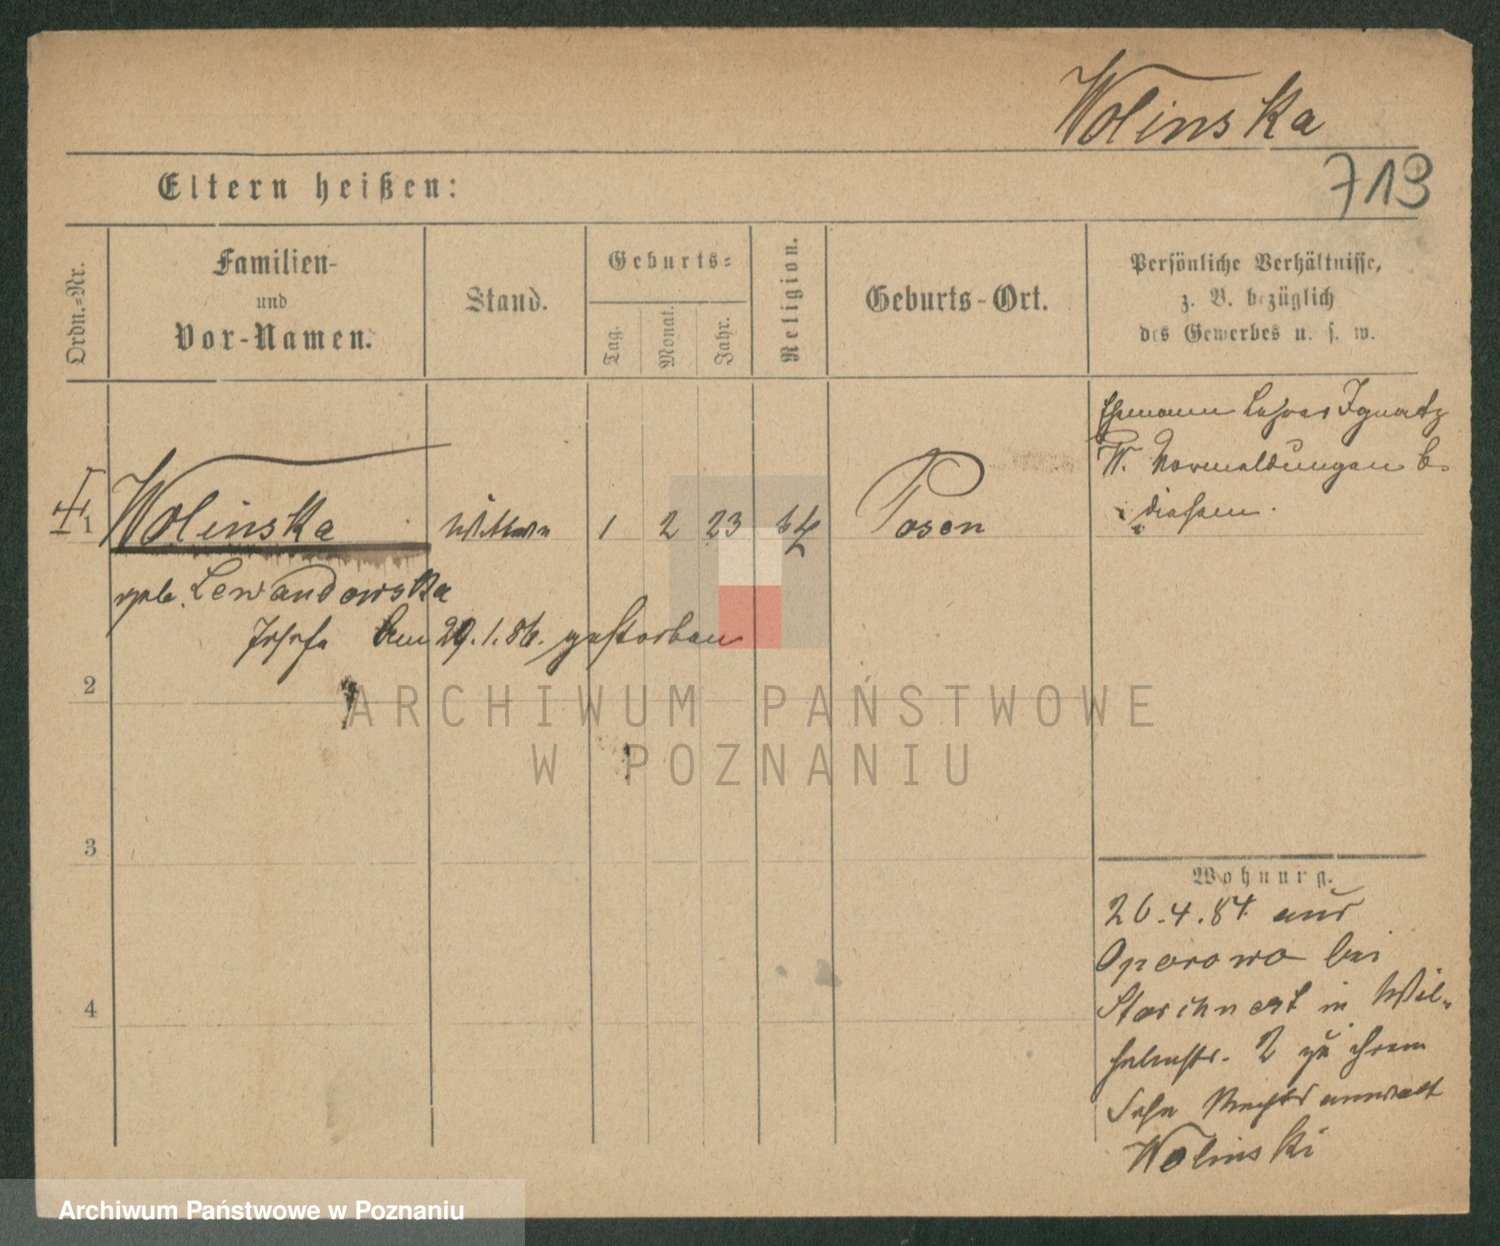 Wolinska
713
Eltern heißen:
Ordn.-Nr.
Familien-
und
Vor-Namen.
Stand.
Geburts-
Tag.
Monat.
Jahr.
Religion.
Geburts-Ort.
Persönliche Verhältnisse,
z. B. bezüglich
des Gewerbes u. s. w.
Ehemann Lehrer Ignatz
W. Vormeldungen b.
diesem.
1 Wolinska Wittwe 1 2 23 kth Posen
geb. Lewandowska
Josefa Am 29.1.86. gestorben
2
ARCHIWUM PAŃSTWOWE
W POZNANIU
3
Wohnung.
26.4.84 aus
Oporowo bei
in Wil-
helmstr. 2 zu ihrem
Sohn Rechtsanwalt
Wolinski
4
Archiwum Państwowe w Poznaniu